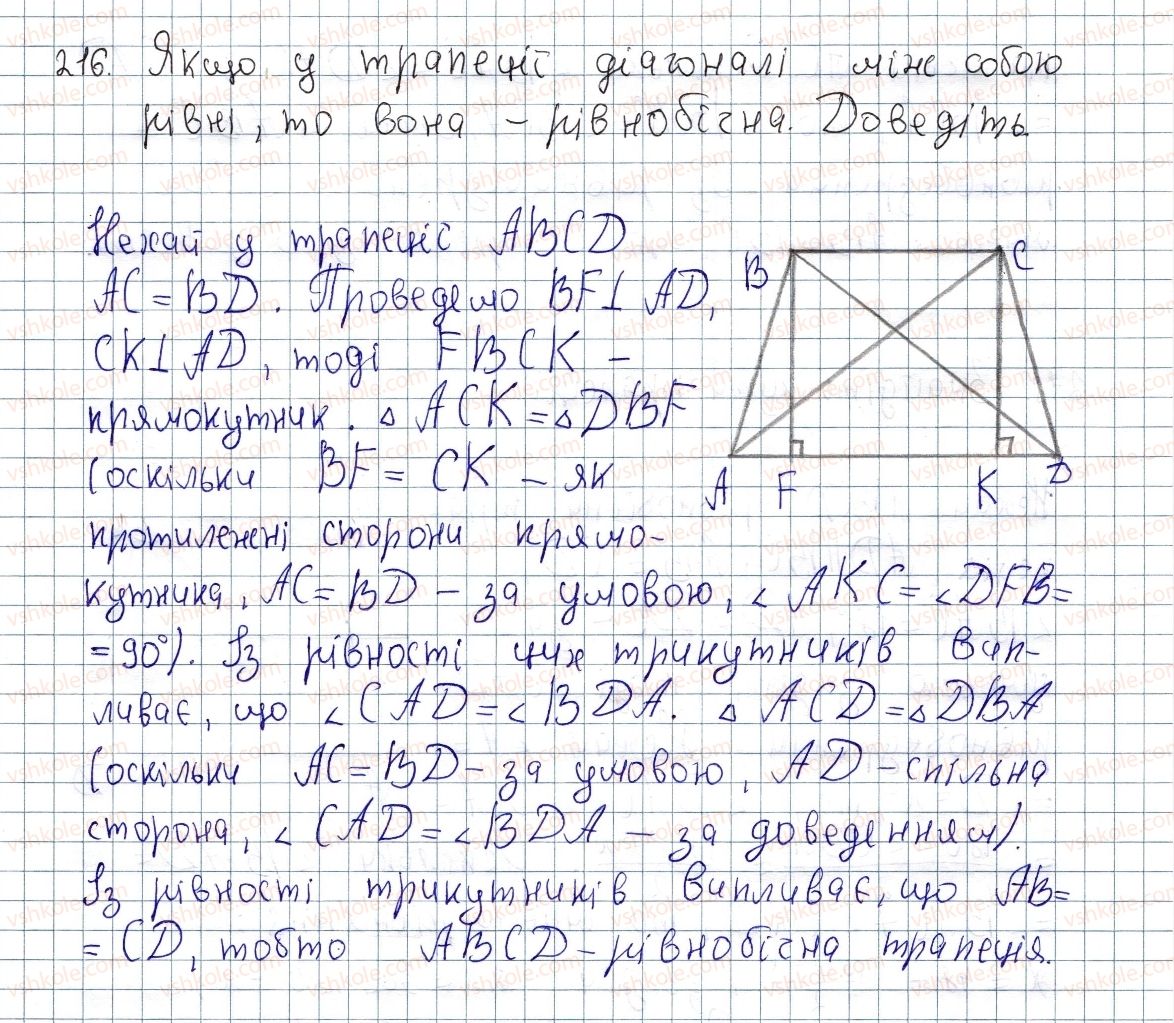 216. Якщо у трапеції діагоналі між собою
рівні, то вона - рівнобічна. Доведіть.
Нехай у трапеціє ABCD
AC = BD. Проведемо BF⊥AD,
CK⊥AD, тоді FBCK -
прямокутник. △ ACK = △ DBF
(оскільки BF = CK - як
протилежні сторони прямо-
кутника, AC = BD - за умовою, ∠ AKC = ∠DFB =
= 90°). Із рівності цих трикутників вип-
ливає, що ∠CAD = ∠BDA. △ ACD = △ DBA
(оскільки AC = BD - за умовою, AD - спільна
сторона, ∠CAD = ∠BDA - за доведенням).
Із рівності трикутників випливає, що AB =
= CD, тобто ABCD - рівнобічна трапеція.
B
C
A
F
K
D
vshkole.com